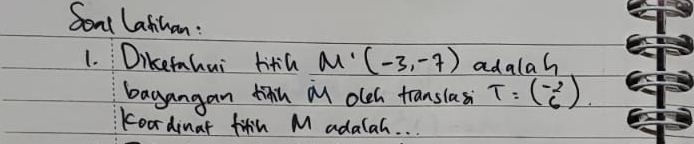 Soal Latihan:
1. Diketahui titik M'(-3,-7) adalah
bayangan titik M oleh translasi T = (-2 6).
Koordinat titik M adalah...